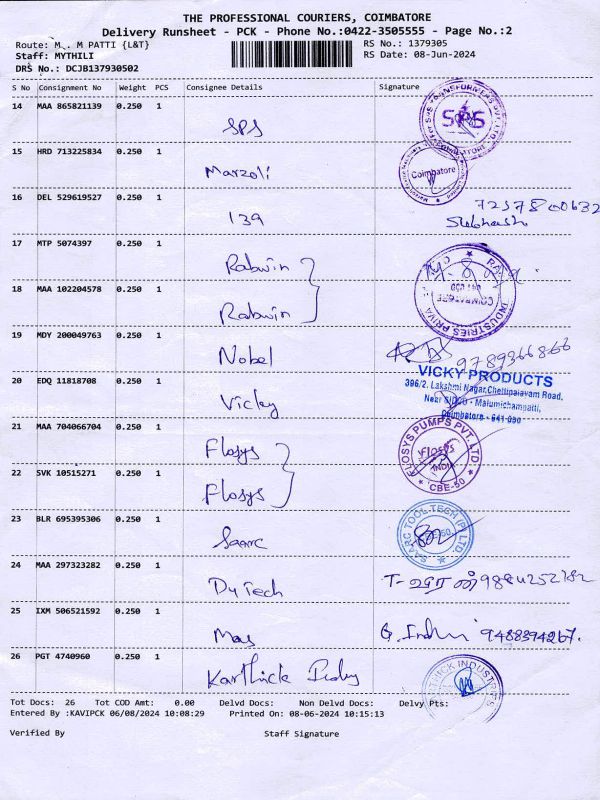 THE PROFESSIONAL COURIERS, COIMBATORE
Delivery Runsheet - PCK - Phone No.:0422-3505555 - Page No.:2
Route: M. M PATTI {L&T}
RS No.: 1379305
Staff: MYTHILI
RS Date: 08-Jun-2024
DRS No.: DCJB137930502
S No Consignment No Weight PCS Consignee Details Signature
14 MAA 865821139 0.250 1
SPS
SPS
15 HRD 713225834 0.250 1
Marzoli
Coimbatore
16 DEL 529619527 0.250 1
139
Subhash
17 MTP 5074397 0.250 1
Rabwin
18 MAA 102204578 0.250 1
Rabwin
INDUSTRIES
19 MDY 200049763 0.250 1
Nobel
9789366866
20 EDQ 11818708 0.250 1
Vicky
VICKY PRODUCTS
396/2, Lakshmi Nagar, Chettipalayam Road,
Near SIDCO - Malumichampatti,
Coimbatore - 641 050
21 MAA 704066704 0.250 1
Flosys
FLOSYS PUMPS PVT. LTD
Flosys
INDIA
CBE-50
22 SVK 10515271 0.250 1
Flosys
23 BLR 695395306 0.250 1
Saarc
SAARC TOOL TECH (P) LTD
24 MAA 297323282 0.250 1
DyTech
25 IXM 506521592 0.250 1
9488394267.
26 PGT 4740960 0.250 1
Karthick
INDUSTRIES
Tot Docs: 26 Tot COD Amt: 0.00 Delvd Docs: Non Delvd Docs: Delvy Pts:
Entered By :KAVIPCK 06/08/2024 10:08:29 Printed On: 08-06-2024 10:15:13
Verified By Staff Signature